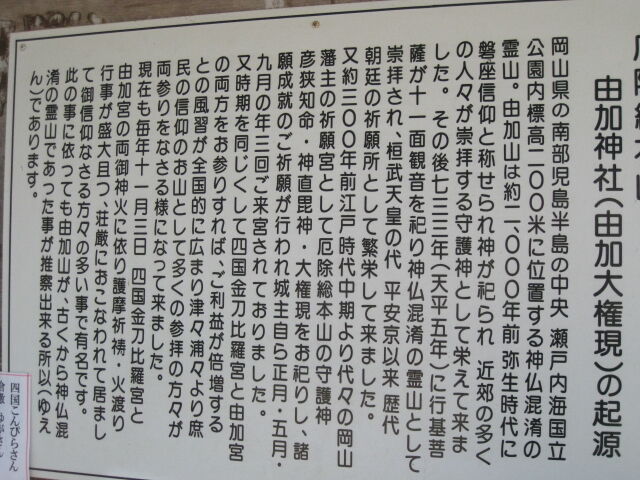 厄除総本山
由加神社(由加大権現)の起源
岡山県の南部児島半島の中央 瀬戸内海国立
公園内標高二〇〇米に位置する神仏混淆の
霊山。由加山は約二、〇〇〇年前 弥生時代に
磐座信仰と称せられ神が祀られ 近郊の多く
の人々が崇拝する守護神として栄えて来ま
した。その後七三三年(天平五年)に行基菩
薩が十一面観音を祀り神仏混淆の霊山として
崇拝され、桓武天皇の代 平安京以来 歴代
朝廷の祈願所として繁栄して来ました。
又約三〇〇年前江戸時代中期より代々の岡山
藩主の祈願宮として厄除総本山の守護神
彦狭知命・神直毘神・大権現をお祀りし、諸
願成就のご祈願が行われ城主自ら正月・五月・
九月の年三回ご来宮されておりました。
又時期を同じくして四国金刀比羅宮と由加宮
の両方をお参りすれば、ご利益が倍増する
との風習が全国的に広まり津々浦々より庶
民の信仰のお山として多くの参拝の方々が
両参りをなさる様になって来ました。
現在も毎年十一月三日 四国金刀比羅宮と
由加宮の両御神火に依り護摩祈祷・火渡り
行事が盛大且つ、荘厳におこなわれて居まし
て御信仰なさる方々の多い事で有名です。
此の事に依っても由加山が、古くから神仏混
淆の霊山であった事が推察出来る所以(ゆえ
ん)であります。
四国こんぴらさん